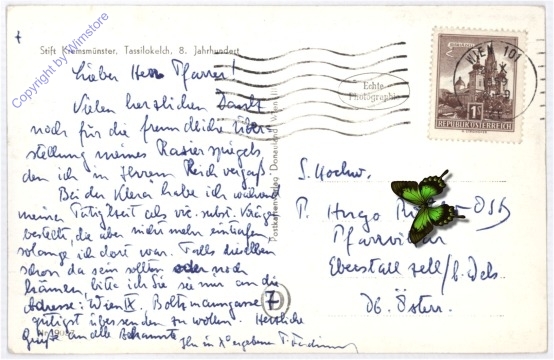 Stift Kremsmünster. Tassilokelch. 8. Jahrhundert
Copyright by Wimstore
Lieber Herr Pfarrer!
Vielen herzlichen Dank
noch für die freundliche Über-
stellung meines Rasierspiegels
den ich in Ihrem Reich vergaß
Bei der Klerei habe ich während
meiner Tätigkeit als vic. subst.
bestellt, die aber nicht mehr eintrafen
solange ich dort war. Falls dieselben
schon da sein sollten oder noch
kämen, bitte ich Sie sie nur an die
Adresse: Wien IX. Boltzmanngasse 7
gütigst übersenden zu wollen. Herzliche
Grüße an alle Bekannte Ihr in Xo ergebener
WIEN 101
Echte
Photographie
1S
REPUBLIK ÖSTERREICH
Postkartenverlag Donauland, Wien
S. Hochw.
P. Hugo OSB
Pfarrvikar
Eberstallzell / b. Wels
Ob. Österr.